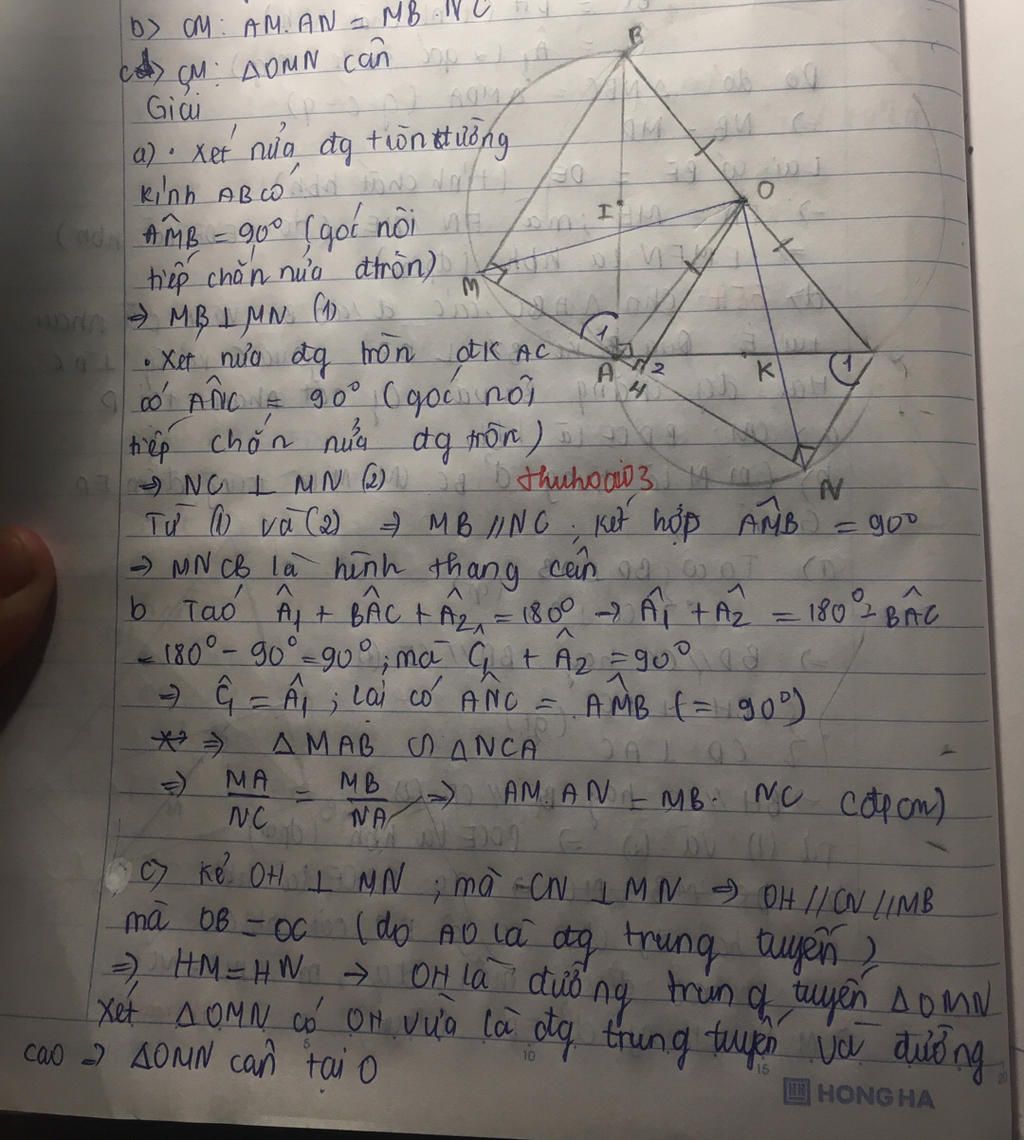 b> CM: AM.AN = MB.NC
c> CM: ΔOMN cân
Giải
a) • Xét nửa đg tròn đường
kính AB có
AM̂B = 90° (góc nội
tiếp chắn nửa đtròn)
⇒ MB ⊥ MN (1)
• Xét nửa đg tròn đk AC
có AN̂C = 90° (góc nội
tiếp chắn nửa đg tròn)
⇒ NC ⊥ MN (2)
thuhoai03
Từ (1) và (2) ⇒ MB // NC ; kết hợp AM̂B = 90°
⇒ MNCB là hình thang cân
b Ta có Â₁ + BÂC + Â₂ = 180° → Â₁ + Â₂ = 180° - BÂC
= 180° - 90° = 90° ; mà Ĉ₁ + Â₂ = 90°
⇒ Ĉ₁ = Â₁ ; lại có AN̂C = AM̂B (= 90°)
⇒ ΔMAB ∽ ΔNCA
⇒ MA/NC = MB/NA ⇒ AM.AN = MB.NC (đpcm)
c) Kẻ OH ⊥ MN ; mà CN ⊥ MN ⇒ OH // CN // MB
mà OB = OC (do AO là đg trung tuyến)
⇒ HM = HN → OH là đường trung tuyến ΔOMN
Xét ΔOMN có OH vừa là đg trung tuyến và đường
cao ⇒ ΔOMN cân tại O
B
O
I
M
1
1
A
2
H
K
N
5
10
15
20
HH HONG HA